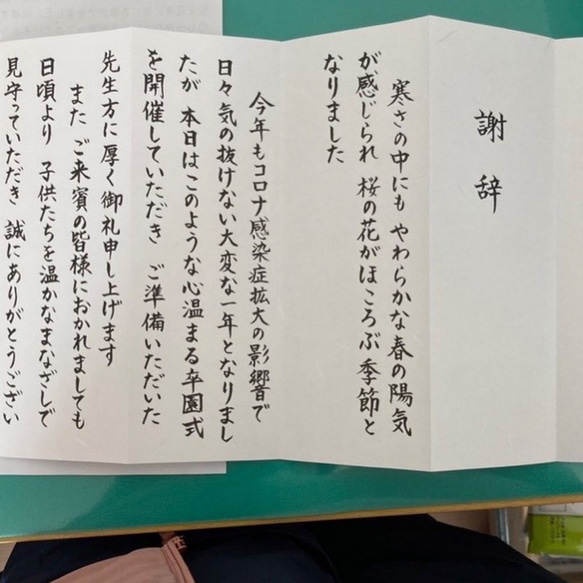 謝辞
寒さの中にも やわらかな春の陽気
が感じられ 桜の花がほころぶ季節と
なりました
今年もコロナ感染症拡大の影響で
日々気の抜けない大変な一年となりまし
たが 本日はこのような心温まる卒園式
を開催していただき ご準備いただいた
先生方に厚く御礼申し上げます
また ご来賓の皆様におかれましても
日頃より 子供たちを温かなまなざしで
見守っていただき 誠にありがとうござい